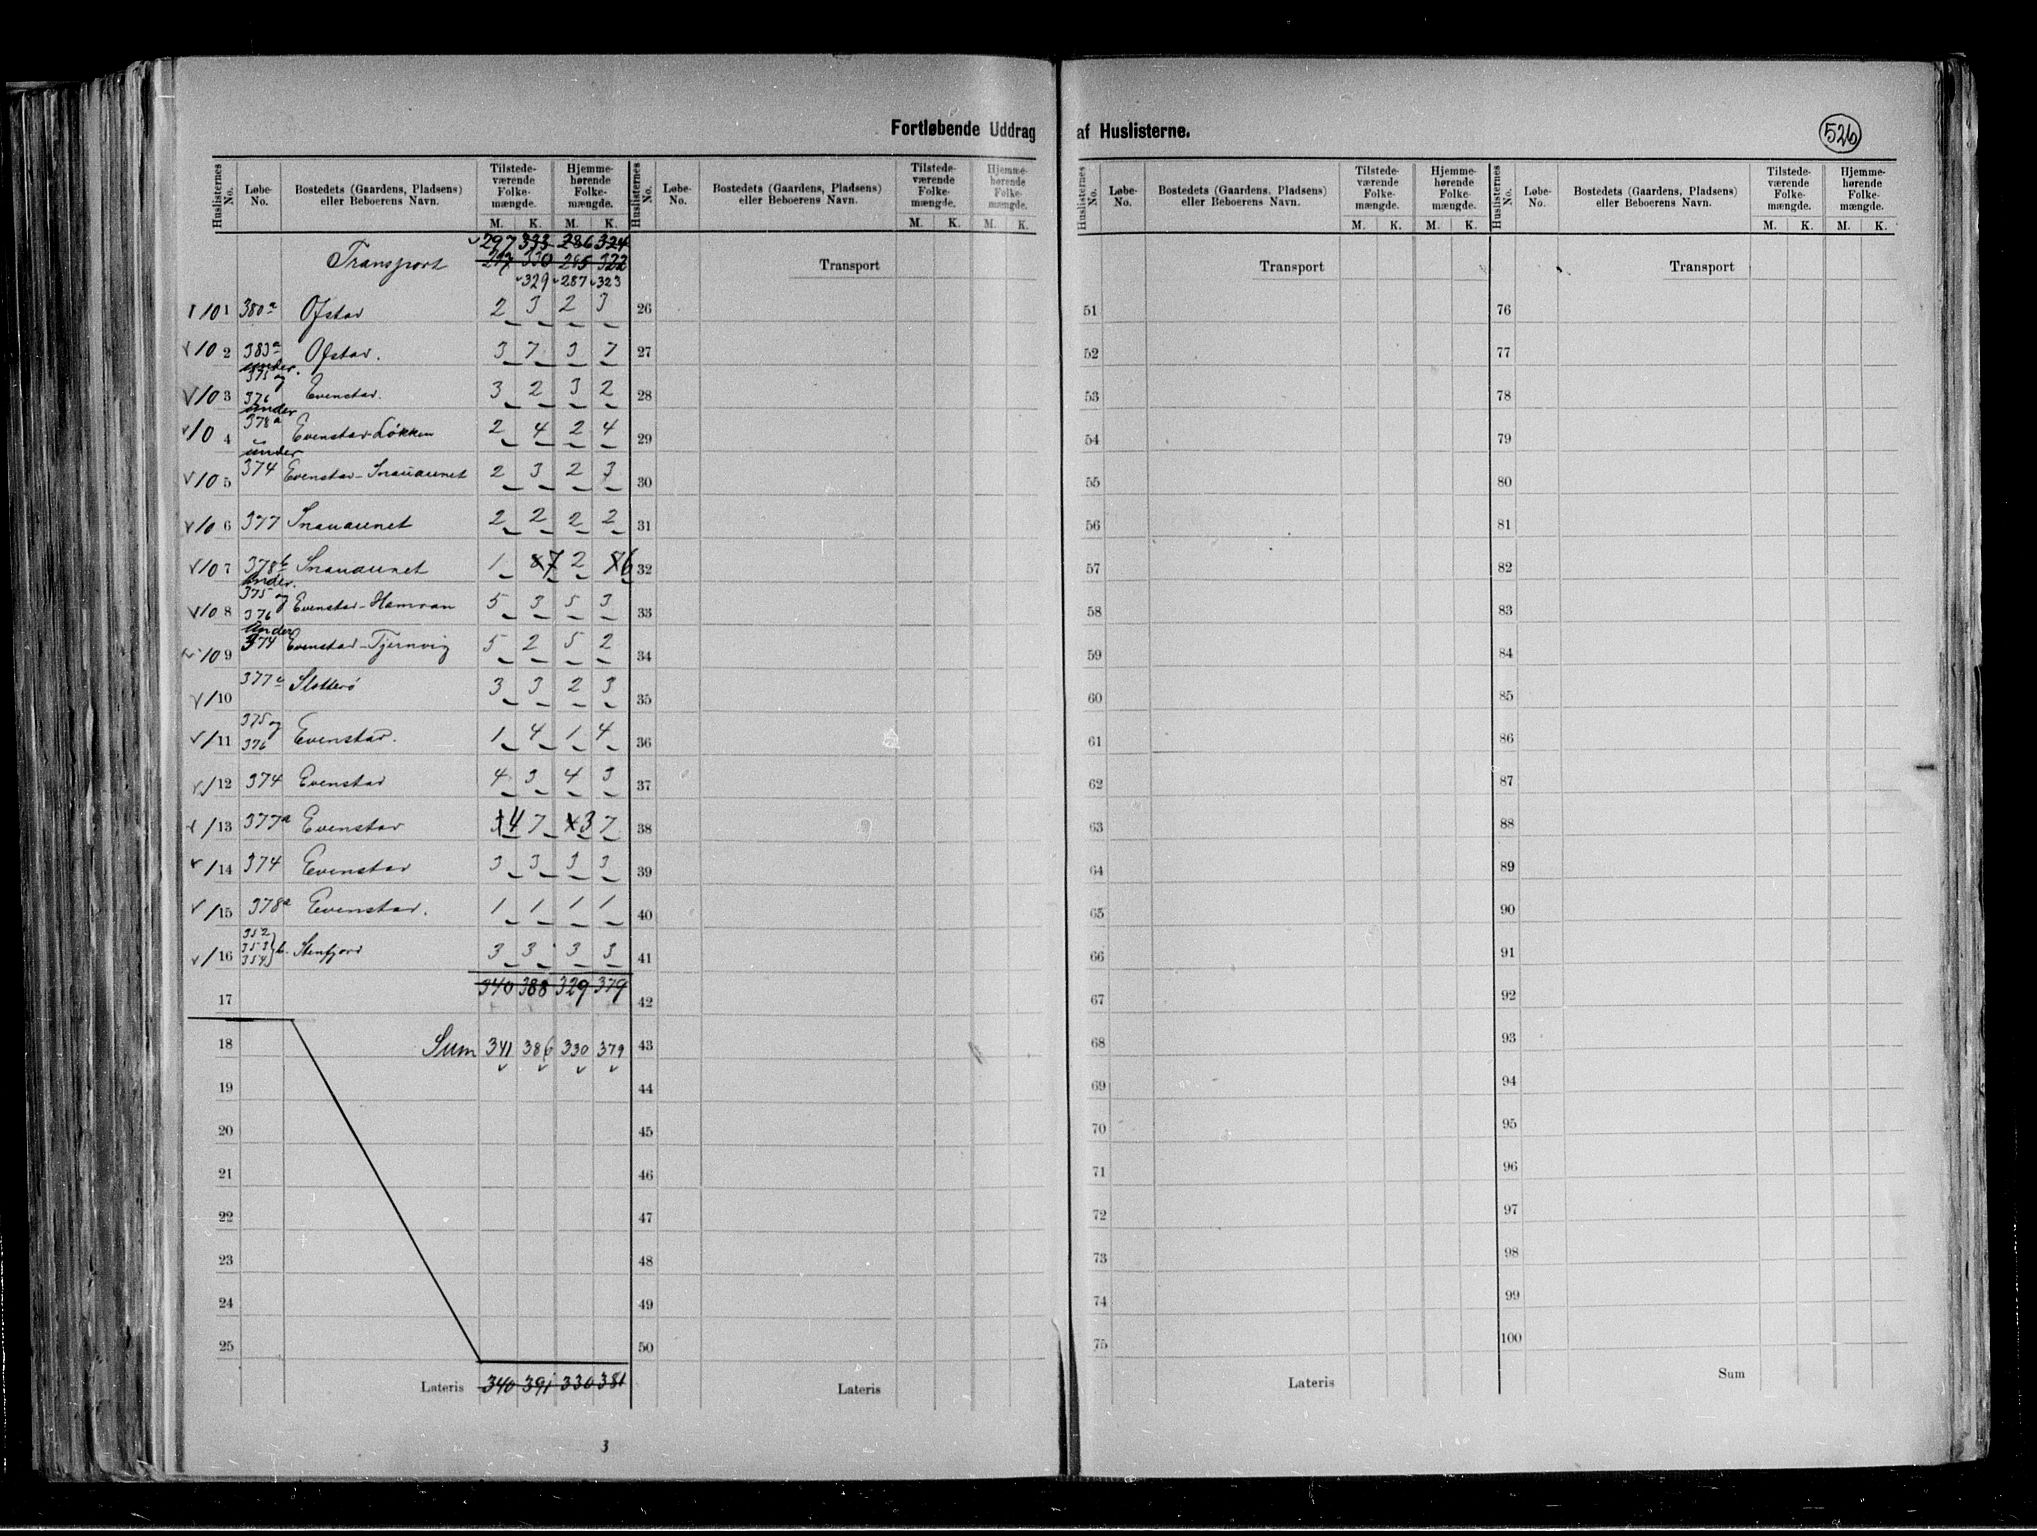 Fortløbende Uddrag af Huslisterne.
526
Huslisternes No. Løbe-No. Bostedets (Gaardens, Pladsens) eller Beboerens Navn. Tilstedeværende Folkemængde. M. K. Hjemmehørende Folkemængde. M. K.
Huslisternes No. Løbe-No. Bostedets (Gaardens, Pladsens) eller Beboerens Navn. Tilstedeværende Folkemængde. M. K. Hjemmehørende Folkemængde. M. K.
Huslisternes No. Løbe-No. Bostedets (Gaardens, Pladsens) eller Beboerens Navn. Tilstedeværende Folkemængde. M. K. Hjemmehørende Folkemængde. M. K.
Huslisternes No. Løbe-No. Bostedets (Gaardens, Pladsens) eller Beboerens Navn. Tilstedeværende Folkemængde. M. K. Hjemmehørende Folkemængde. M. K.
297 333 286 324
Transport 297 330 285 322 Transport Transport Transport
329 287 323
1 380a Ofstad 2 3 2 3 26 51 76
2 383a Ofstad. 3 7 3 7 27 52 77
3 under 375 og 376 Evenstad. 3 2 3 2 28 53 78
4 under 378a Evenstad Løkken 2 4 2 4 29 54 79
5 under 374 Evenstad-Snauaunet 2 3 2 3 30 55 80
6 377 Snauaunet 2 2 2 2 31 56 81
7 378b Snauaunet 1 8 7 2 8 6 32 57 82
8 under 375 og 376 Evenstad-Hamran 5 3 5 3 33 58 83
9 under 374 Evenstad-Tjernvig 5 2 5 2 34 59 84
10 377 Slotterø 3 3 2 3 35 60 85
11 375 og 376 Evenstad. 1 4 1 4 36 61 86
12 374 Evenstad 4 3 4 3 37 62 87
13 377a Evenstad 3 4 7 4 3 7 38 63 88
14 374 Evenstad 3 3 3 3 39 64 89
15 378a Evenstad. 1 1 1 1 40 65 90
16 352 353 354 b. Stenfjord 3 3 3 3 41 66 91
17 340 388 329 379 42 67 92
18 Sum 341 386 330 379 43 68 93
19 44 69 94
20 45 70 95
21 46 71 96
22 47 72 97
23 48 73 98
24 49 74 99
25 50 75 100
Lateris 340 391 330 381 Lateris Lateris Sum
3